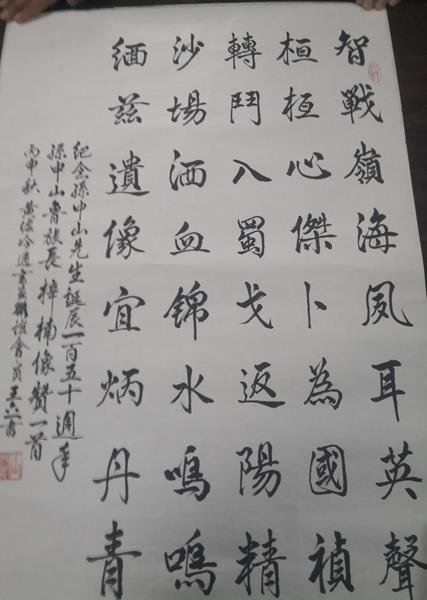 智戰嶺海夙耳英聲
桓桓心傑卜為國禎
轉鬥入蜀戈返陽精
沙場洒血錦水鳴鳴
緬茲遺像宜炳丹青
紀念孫中山先生誕辰一百五十週年
孫中山魯旅長梓楠像贊一首
丙申秋 黃 書畫聯誼會員 王 書